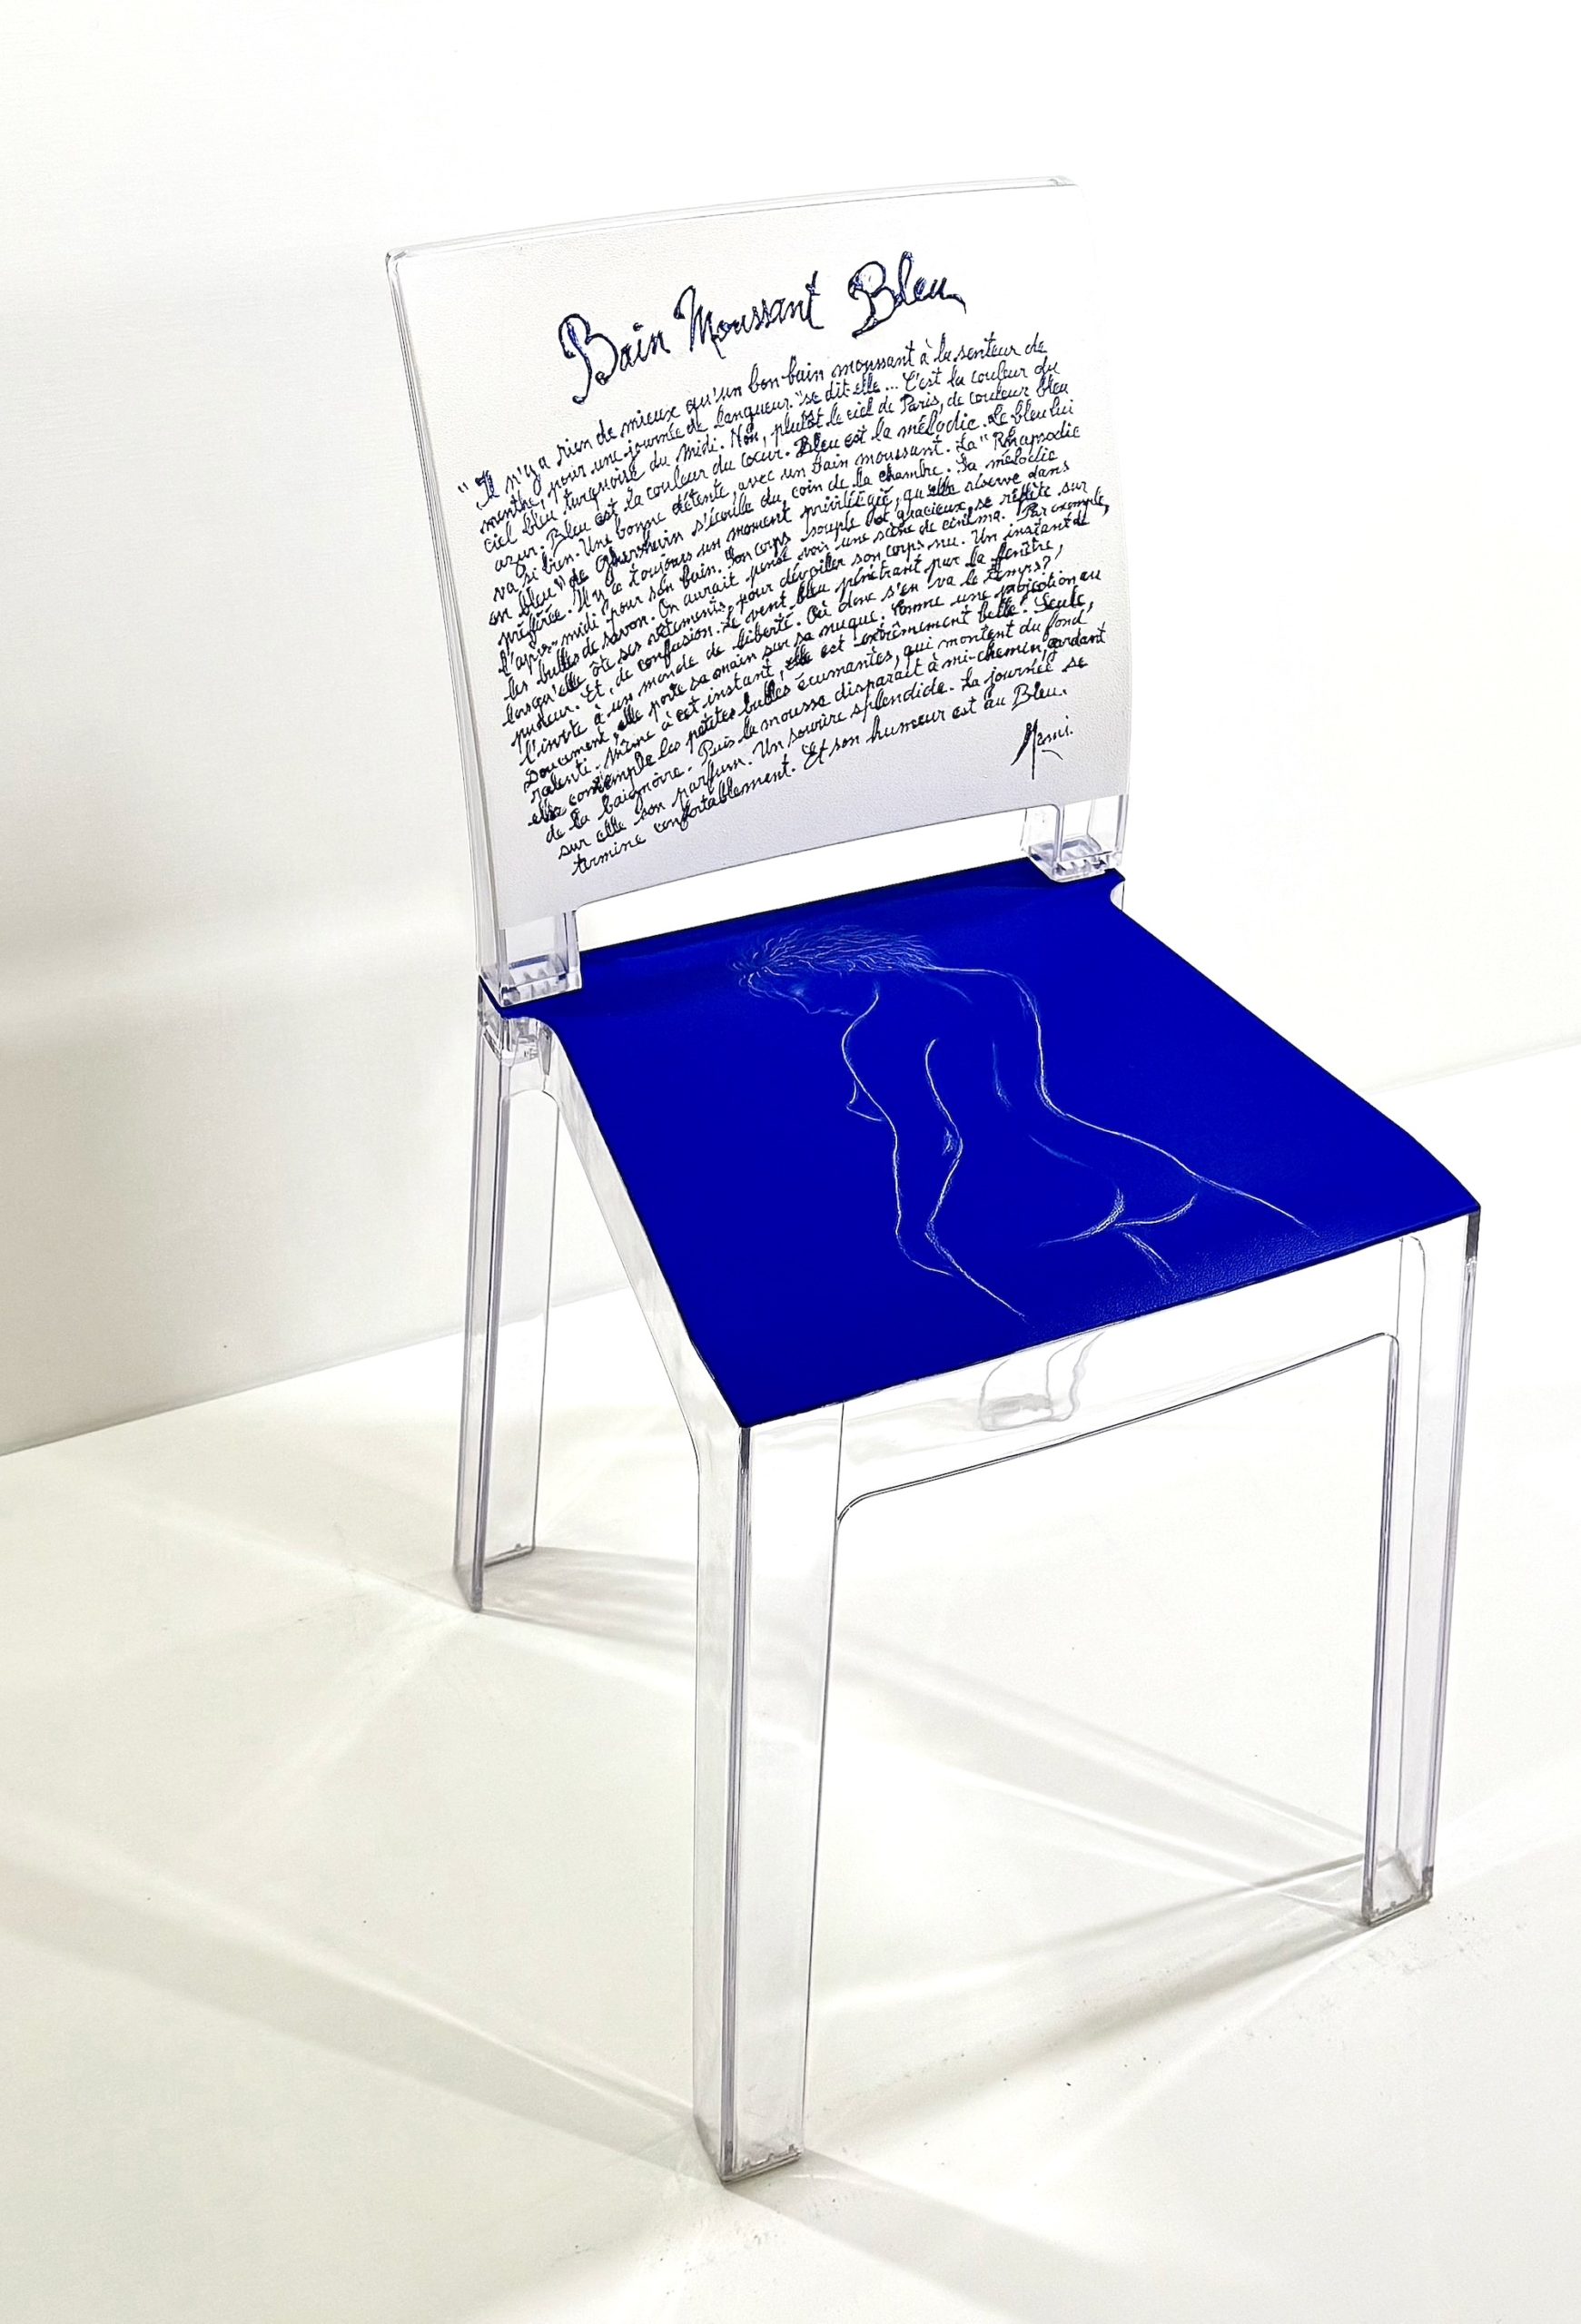 Bain Moussant Bleu
"Il n'y a rien de mieux qu'un bon bain moussant à la senteur de
menthe, pour une journée de langueur." se dit-elle... C'est la couleur du
ciel bleu turquoise du midi. Non, plutôt le ciel de Paris, de couleur bleu
azur. Bleu est la couleur du cœur. Bleu est la mélodie. Le bleu lui
va si bien. Une bonne détente, avec un bain moussant. La "Rhapsodie
en bleu" de Ghershwin s'écoule du coin de la chambre. Sa mélodie
préférée. Il y a toujours un moment privilégié, qu'elle réserve dans
l'après-midi pour son bain. Son corps souple et gracieux, se reflète sur
les bulles de savon. On aurait pensé voir une scène de cinéma. Par exemple,
lorsqu'elle ôte ses vêtements, pour dévoiler son corps nu. Un instant de
pudeur. Et, de confusion. Le vent bleu pénétrant par la fenêtre,
l'invite à un monde de liberté. Où donc s'en va le temps?
Doucement, elle porte sa main sur sa nuque. Comme une projection au
ralenti. Même à cet instant, elle est extrêmement belle. Seule,
elle contemple les petites bulles écumantes, qui montent du fond
de la baignoire. Puis la mousse disparaît à mi-chemin, gardant
sur elle son parfum. Un sourire splendide. La journée se
termine confortablement. Et son humeur est au Bleu.